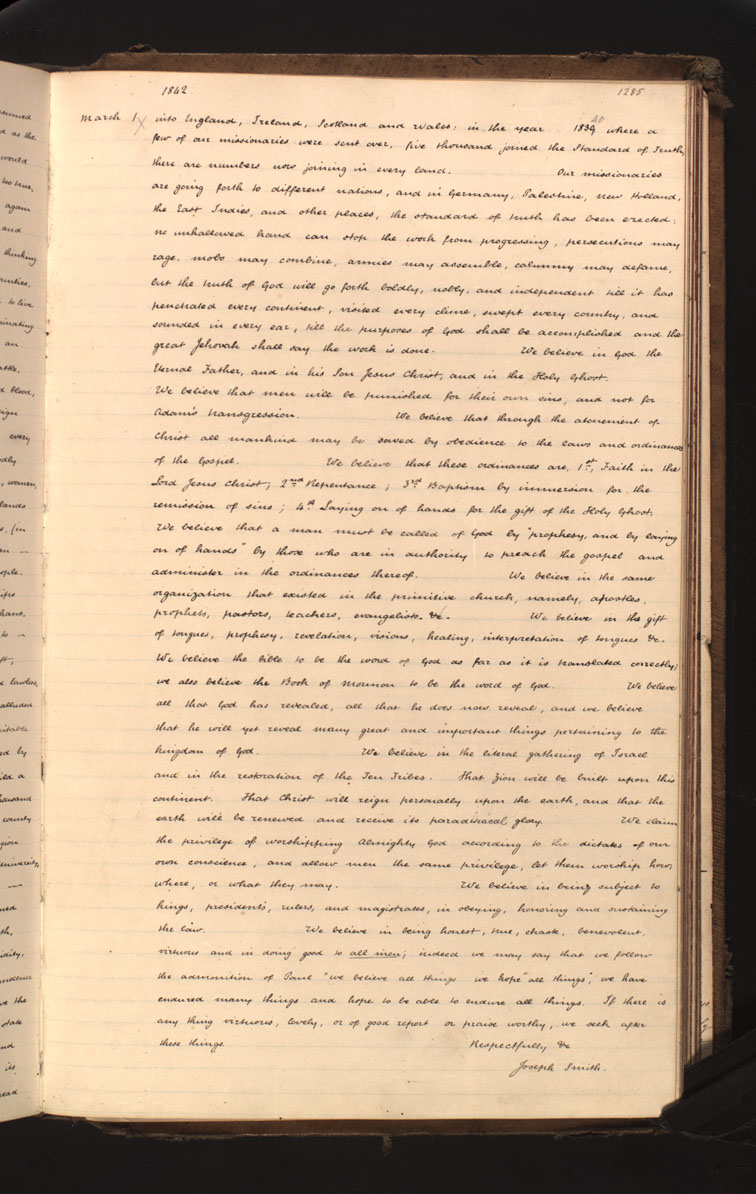 1842
1285
March 1 into England, Ireland, Scotland and Wales: in the year 1839 40 where a
few of our missionaries were sent over, five thousand joined the Standard of Truth,
there are numbers now joining in every land. Our missionaries
are going forth to different nations, and in Germany, Palestine, New Holland,
the East Indies, and other places, the standard of truth has been erected:
no unhallowed hand can stop the work from progressing, persecutions may
rage, mobs may combine, armies may assemble, calumny may defame,
but the truth of God will go forth boldly, nobly, and independent till it has
penetrated every continent, visited every clime, swept every country, and
sounded in every ear, till the purposes of God shall be accomplished and the
great Jehovah shall say the work is done. We believe in God the
Eternal Father, and in his Son Jesus Christ, and in the Holy Ghost.
We believe that men will be punished for their own sins, and not for
Adam's transgression. We believe that through the atonement of
Christ all mankind may be saved by obedience to the laws and ordinances
of the Gospel. We believe that these ordinances are, 1st, Faith in the
Lord Jesus Christ; 2nd Repentance; 3rd Baptism by immersion for the
remission of sins; 4th Laying on of hands for the gift of the Holy Ghost.
We believe that a man must be called of God by "prophesy, and by laying
on of hands" by those who are in authority to preach the gospel and
administer in the ordinances thereof. We believe in the same
organization that existed in the primitive church, namely, apostles,
prophets, pastors, teachers, evangelists &c. We believe in the gift
of tongues, prophesy, revelation, visions, healing, interpretation of tongues &c.
We believe the bible to be the word of God as far as it is translated correctly;
we also believe the Book of Mormon to be the word of God. We believe
all that God has revealed, all that he does now reveal, and we believe
that he will yet reveal many great and important things pertaining to the
kingdom of God. We believe in the literal gathering of Israel
and in the restoration of the Ten Tribes. That Zion will be built upon this
continent. That Christ will reign personally upon the earth, and that the
earth will be renewed and receive its paradisiacal glory. We claim
the privilege of worshipping Almighty God according to the dictates of our
own conscience, and allow men the same privilege, let them worship how,
where, or what they may. We believe in being subject to
kings, presidents, rulers, and magistrates, in obeying, honoring and sustaining
the law. We believe in being honest, true, chaste, benevolent,
virtuous and in doing good to all men; indeed we may say that we follow
the admonition of Paul "we believe all things we hope all things", we have
endured many things and hope to be able to endure all things. If there is
any thing virtuous, lovely, or of good report or praise worthy, we seek after
these things. Respectfully &c
Joseph Smith.